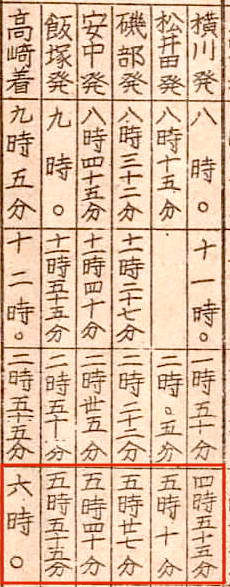 横川発 八時。 十一時。 一時五十分 四時五十五分
松井田発 八時十五分 二時。五分 五時十分
磯部発 八時三十二分 十一時二十七分 二時二十二分 五時廿七分
安中発 八時四十五分 十一時四十分 二時卅五分 五時四十分
飯塚発 九時。 十一時五十五分 二時五十分 五時五十五分
高﨑着 九時五分 十二時。 二時五十五分 六時。